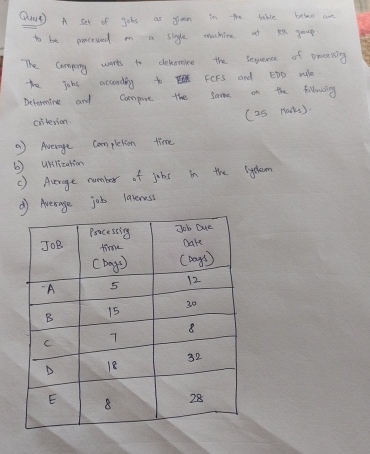 A set of jobs as given in the table below are
to be processed on a single machine at RR group.
The Company wants to determine the sequence of processing
the jobs according to FCFS and EDD rule
Determine and Compare the same on the following
criterion. (25 Marks).
a) Average Completion time
b) Utilization
c) Average number of jobs in the System
d) Average job lateness
JOB Processing time (Days) Job Due Date (Days)
A 5 12
B 15 30
C 7 8
D 18 32
E 8 28